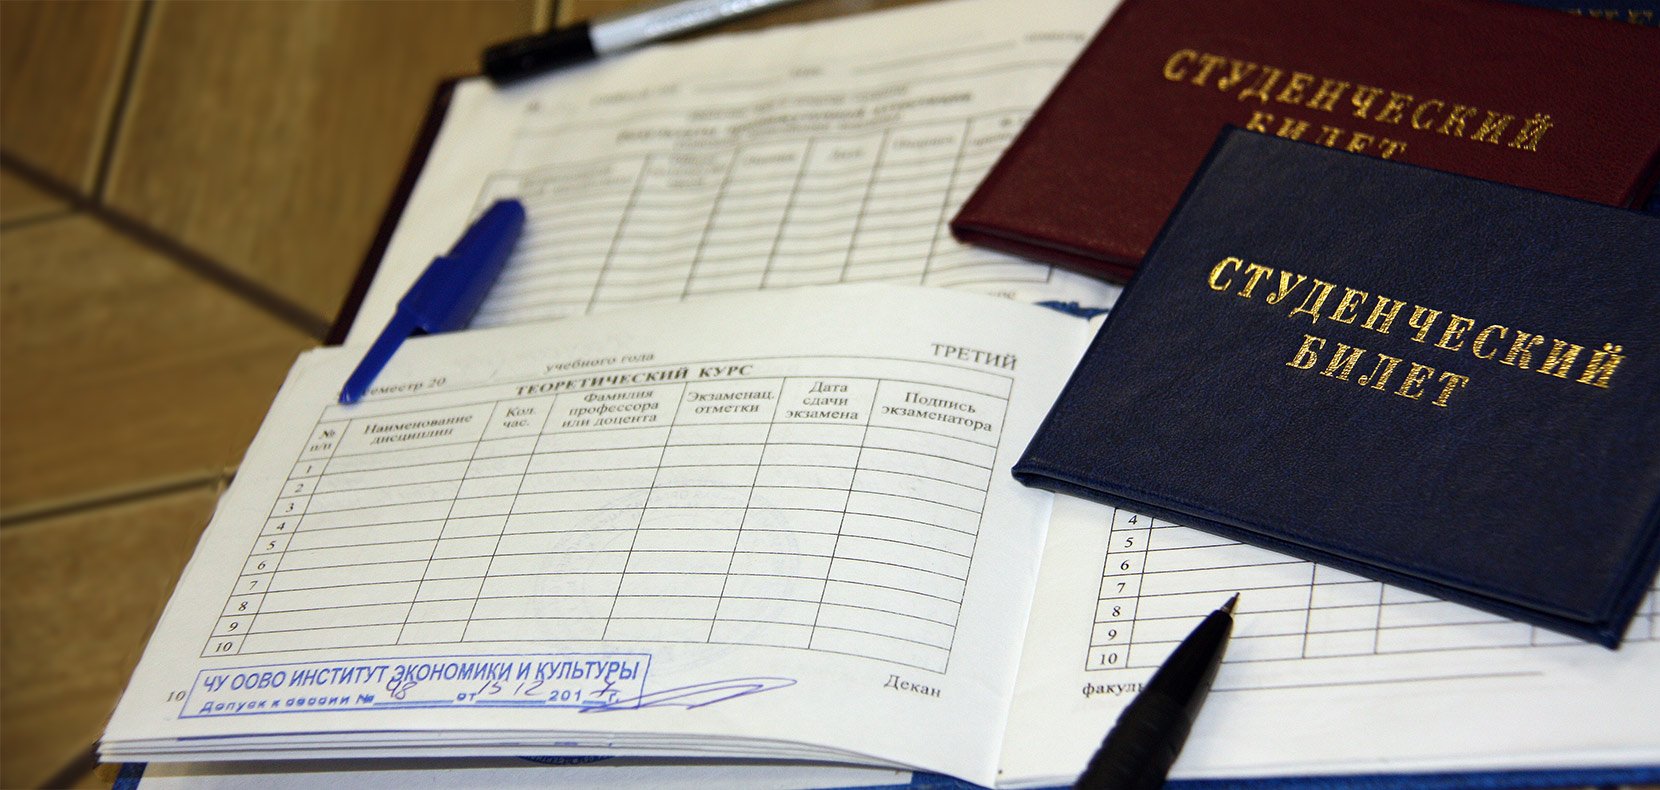 СТУДЕНЧЕСКИЙ
БИЛЕТ
СТУДЕНЧЕСКИЙ
БИЛЕТ
ТРЕТИЙ
семестр 20 учебного года
ТЕОРЕТИЧЕСКИЙ КУРС
№ п/п Наименование дисциплин Кол. час. Фамилия профессора или доцента Экзаменац. отметки Дата сдачи экзамена Подпись экзаменатора
1
2
3
4
5
6
7
8
9
10
ЧУ ООВО ИНСТИТУТ ЭКОНОМИКИ И КУЛЬТУРЫ
Допуск к сессии № 98 от 15 12 2017 г.
10
Декан
4
5
6
7
8
9
10